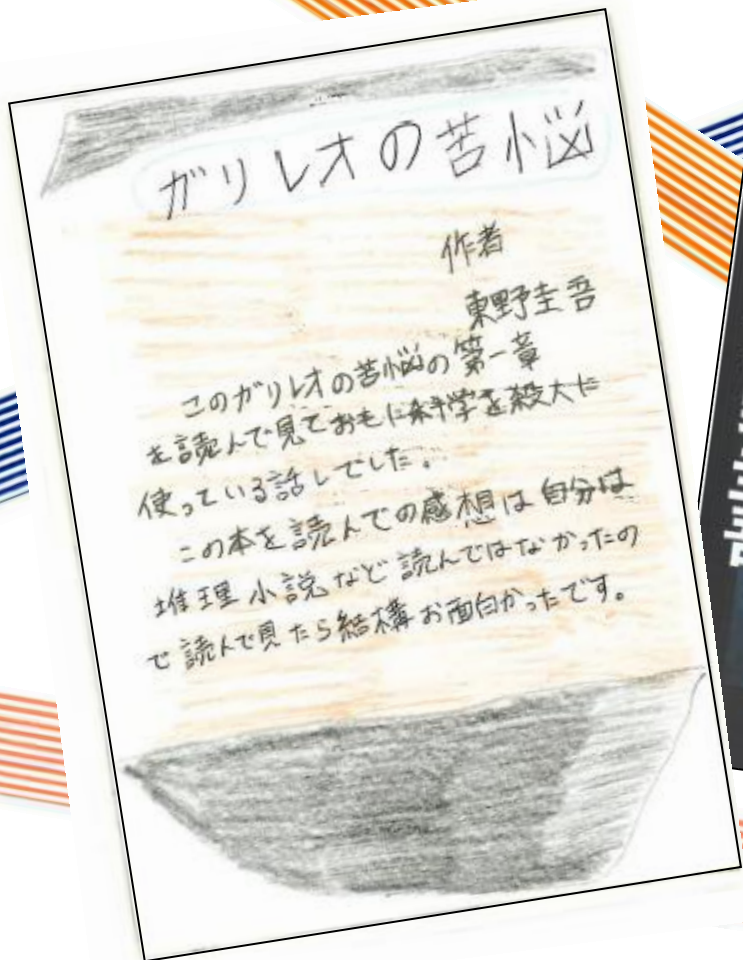 ガリレオの苦悩
作者
東野圭吾
このガリレオの苦悩の第一章
を読んで見ておもに科学を殺人に
使っている話しでした。
この本を読んでの感想は自分は
推理小説など読んではなかったの
で読んで見たら結構お面白かったです。